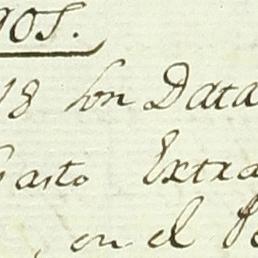 gos.
18 son Data
Gasto Extra
, en el